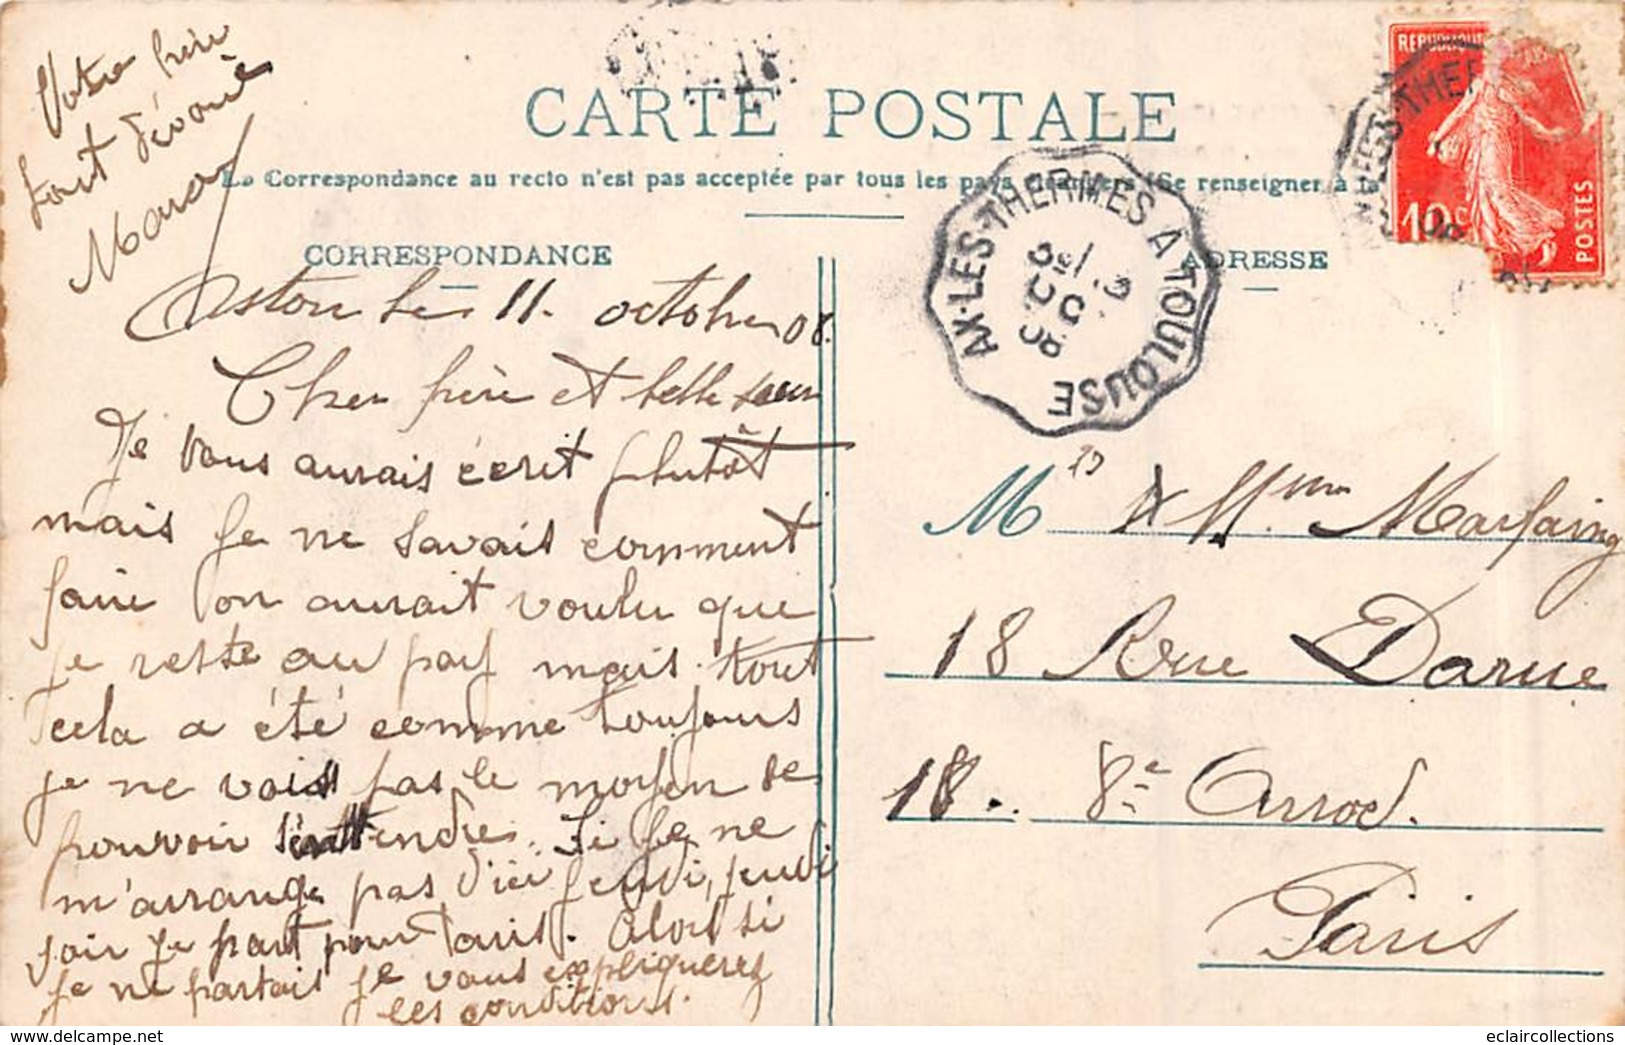 CARTE POSTALE
La Correspondance au recto n'est pas acceptée par tous les pays étrangers (Se renseigner à la
CORRESPONDANCE
ADRESSE
Votre frère
tout dévoué
Aston le 11. octobre 08.
Cher frère et belle soeur
Je vous aurais écrit plutôt
mais je ne savais comment
faire on aurait voulu que
je reste au pays mais tout
cela a été comme toujours
je ne vois pas le moyen de
pouvoir s'entendre. Si je ne
m'arrange pas d'ici jeudi, jeudi
soir je part pour Paris. Alors si
je ne partais je vous expliquerez
les conditions.
AX-LES-THERMES A TOULOUSE
REPUBLIQUE
10c
POSTES
M & Mme Marfaing
18 Rue Darue
18.. 8e Arrod.
Paris
eclaircollections